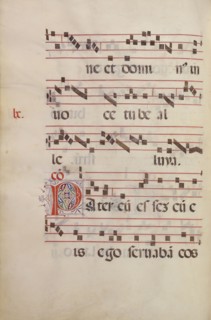 ne et domi n' in
no ce tu be al
lx.
le luya.
cō
Pater cū es sez cū e
is ego servabā eos